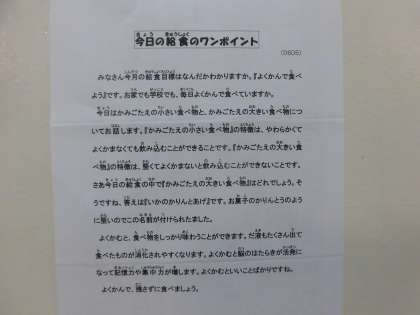 今日の給食のワンポイント
(0606)
みなさん今月の給食目標はなんだかわかりますか。『よくかんで食べ
よう』です。お家でも学校でも、毎日よくかんで食べていますか。
今日はかみごたえの小さい食べ物と、かみごたえの大きい食べ物につ
いてお話します。『かみごたえの小さい食べ物』の特徴は、やわらかくて
よくかまなくても飲み込むことができることです。『かみごたえの大きい食
べ物』の特徴は、堅くてよくかまないと飲み込むことができないことです。
さあ今日の給食の中で『かみごたえの大きい食べ物』はどれでしょう。そ
うですね、答えは『いかのかりんとあげ』です。お菓子のかりんとうのよう
に堅いのでこの名前が付けられました。
よくかむと、食べ物をしっかり味わうことができます。だ液もたくさん出て
食べたものが消化されやすくなります。よくかむと脳のはたらきが活発に
なって記憶力や集中力が増します。よくかむといいことばかりですね。
よくかんで、残さずに食べましょう。